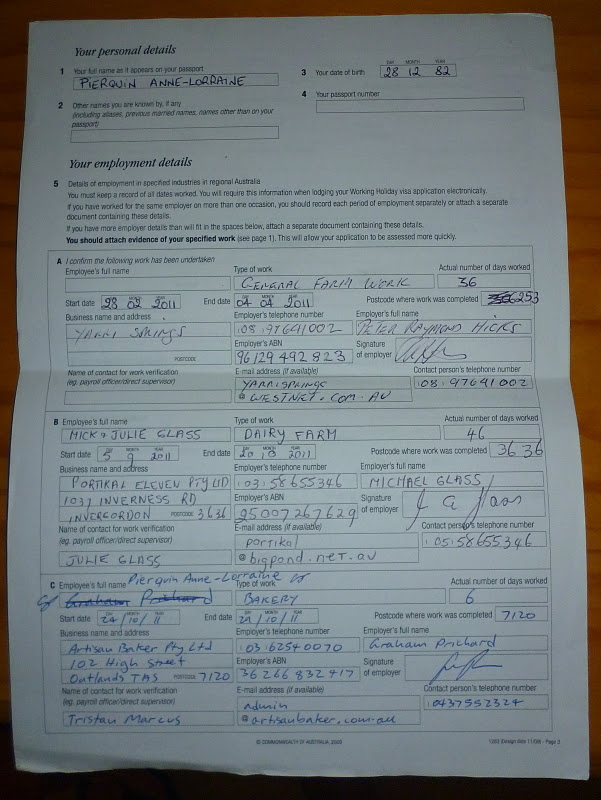 Your personal details
1 Your full name as it appears on your passport
PIERQUIN ANNE-LORRAINE
3 Your date of birth
DAY MONTH YEAR
28 12 82
2 Other names you are known by, if any
(including aliases, previous married names, names other than on your passport)
4 Your passport number
Your employment details
5 Details of employment in specified industries in regional Australia
You must keep a record of all dates worked. You will require this information when lodging your Working Holiday visa application electronically.
If you have worked for the same employer on more than one occasion, you should record each period of employment separately or attach a separate
document containing these details.
If you have more employer details than will fit in the spaces below, attach a separate document containing these details.
You should attach evidence of your specified work (see page 1). This will allow your application to be assessed more quickly.
A I confirm the following work has been undertaken
Employee's full name
Type of work
GENERAL FARM WORK
Actual number of days worked
36
Start date 28 02 2011
End date 04 04 2011
Postcode where work was completed 6253
Business name and address
YARRI SPRINGS
POSTCODE
Employer's telephone number
08 97641002
Employer's full name
PETER RAYMOND HICKS
Employer's ABN
96129492823
Signature of employer
Name of contact for work verification
(eg. payroll officer/direct supervisor)
E-mail address (if available)
YARRISPRINGS
@ WESTNET.COM.AU
Contact person's telephone number
08 97641002
B Employee's full name
MICK & JULIE GLASS
Type of work
DAIRY FARM
Actual number of days worked
46
Start date 5 9 2011
End date 20 10 2011
Postcode where work was completed 3636
Business name and address
PORTKAL ELEVEN PTY LTD
1037 INVERNESS RD
INVERGORDON POSTCODE 3636
Employer's telephone number
03 58655346
Employer's full name
MICHAEL GLASS
Employer's ABN
25007267629
Signature of employer
Name of contact for work verification
(eg. payroll officer/direct supervisor)
JULIE GLASS
E-mail address (if available)
portkal
@ bigpond.net.au
Contact person's telephone number
03 58655346
C Employee's full name Pierquin Anne-Lorraine
Graham Prichard
Type of work
BAKERY
Actual number of days worked
6
Start date 24/10/11
End date
Postcode where work was completed 7120
Business name and address
Artisan Baker Pty Ltd
102 High Street
Oatlands TAS POSTCODE 7120
Employer's telephone number
03 62540070
Employer's full name
Graham Prichard
Employer's ABN
36266832417
Signature of employer
Name of contact for work verification
(eg. payroll officer/direct supervisor)
Tristan Marcus
E-mail address (if available)
admin
@ artisanbaker.com.au
Contact person's telephone number
0437552324
© COMMONWEALTH OF AUSTRALIA, 2009
1263 (Design date 11/09) - Page 2